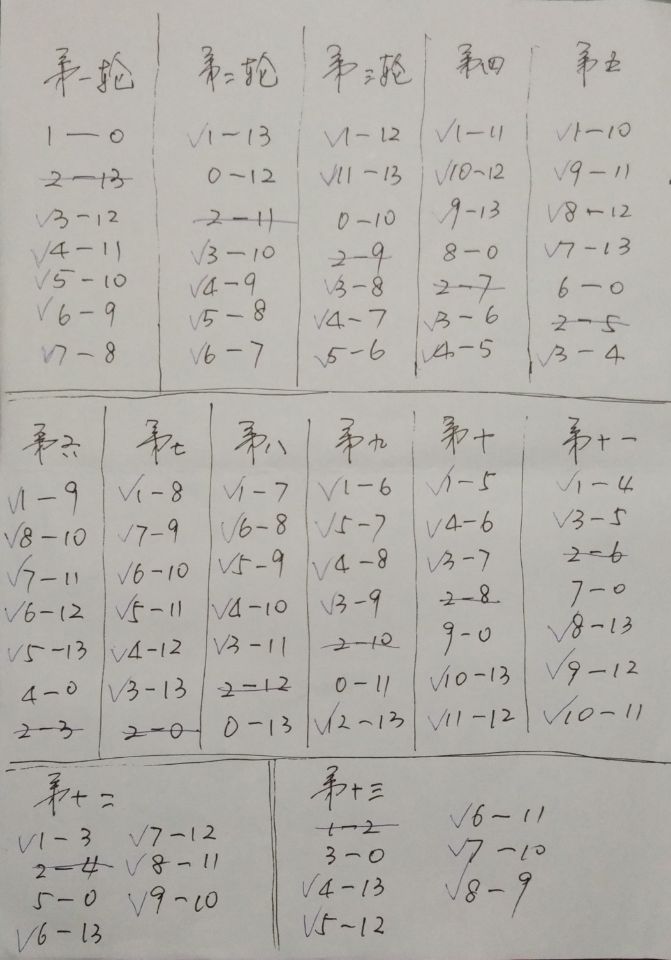 第一轮
1-0
2-13
√3-12
√4-11
√5-10
√6-9
√7-8
第二轮
√1-13
0-12
2-11
√3-10
√4-9
√5-8
√6-7
第三轮
√1-12
√11-13
0-10
2-9
√3-8
√4-7
√5-6
第四
√1-11
√10-12
√9-13
8-0
2-7
√3-6
√4-5
第五
√1-10
√9-11
√8-12
√7-13
6-0
2-5
√3-4
第六
√1-9
√8-10
√7-11
√6-12
√5-13
4-0
2-3
第七
√1-8
√7-9
√6-10
√5-11
√4-12
√3-13
2-0
第八
√1-7
√6-8
√5-9
√4-10
√3-11
2-12
0-13
第九
√1-6
√5-7
√4-8
√3-9
2-10
0-11
√12-13
第十
√1-5
√4-6
√3-7
2-8
9-0
√10-13
√11-12
第十一
√1-4
√3-5
2-6
7-0
√8-13
√9-12
√10-11
第十二
√1-3
2-4
5-0
√6-13
√7-12
√8-11
√9-10
第十三
1-2
3-0
√4-13
√5-12
√6-11
√7-10
√8-9